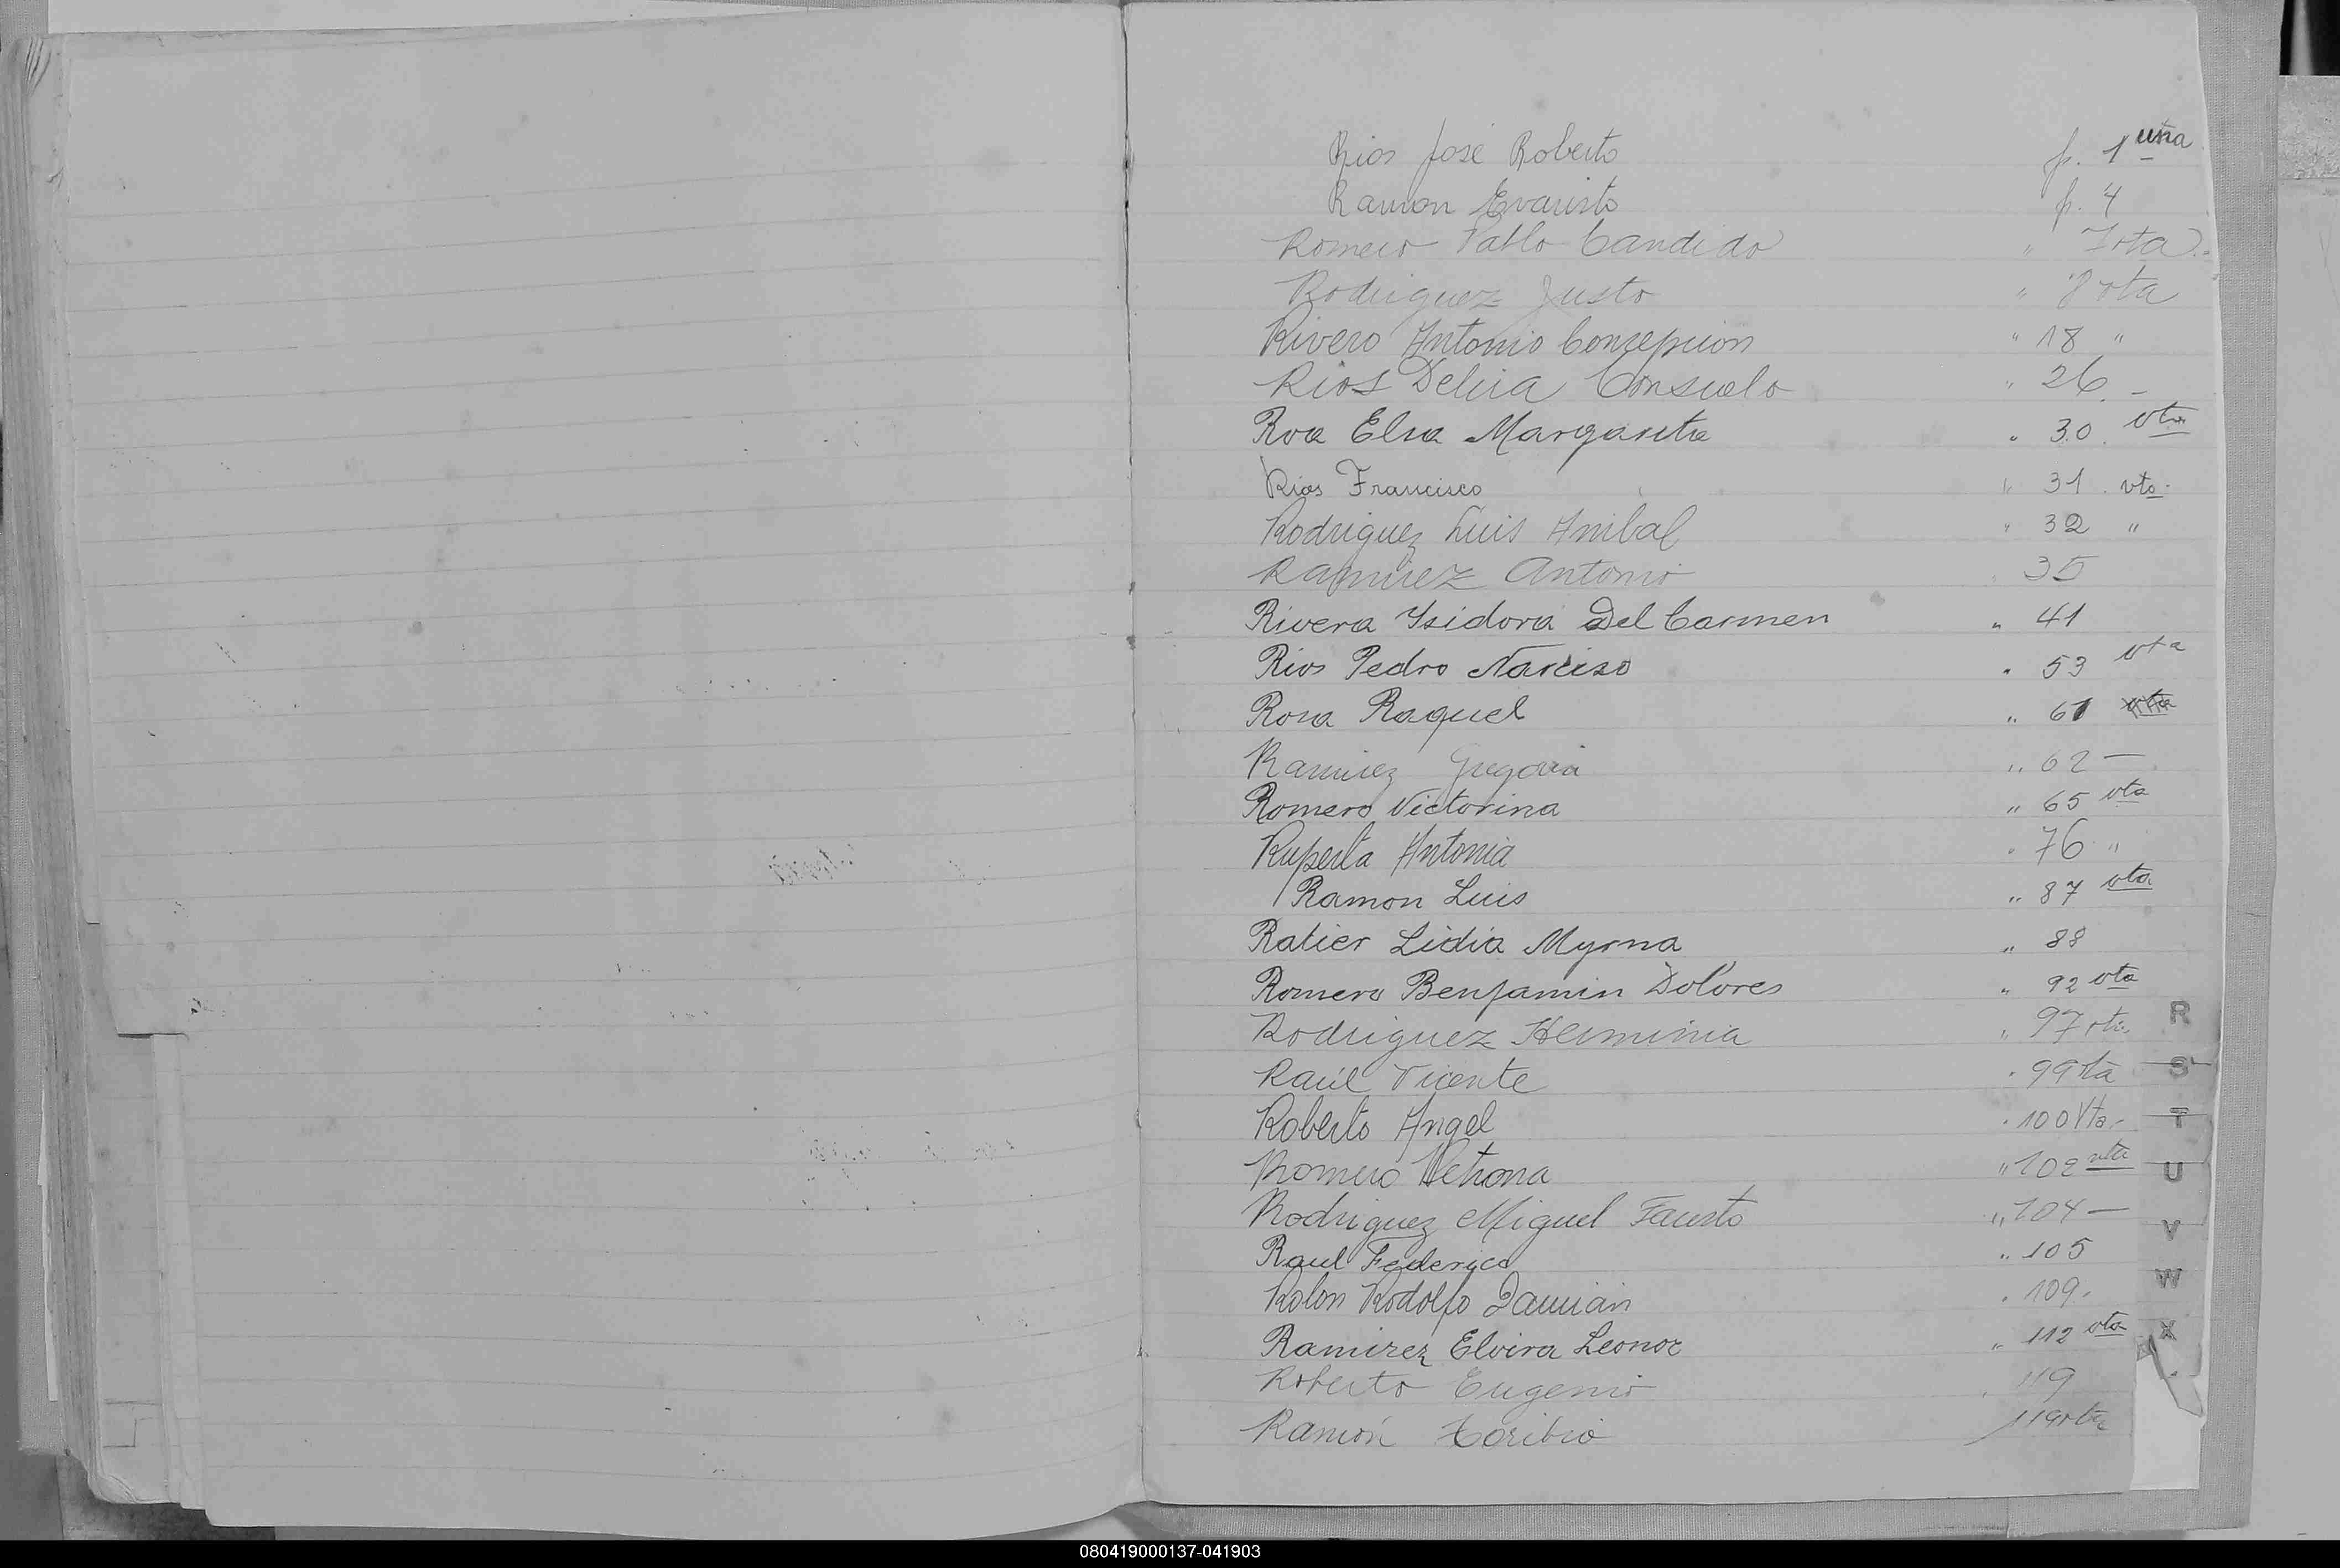 Rios José Roberto f. 1 una
Ramon Evaristo f. 4
Romero Pablo Candido " 7 vta.
Rodriguez Justo " 8 vta
Rivero Antonio Consepcion " 18 "
Rios Delicia Consuelo " 26 -
Roa Elsa Margarita " 30. vta
Rios Francisco " 31. vta.
Rodriguez Luis Anibal " 32 "
Ramirez Antonio " 35
Rivera Ysidora Del Carmen " 41
Rios Pedro Narciso " 53 vta
Rosa Raquel " 61
Ramirez Gregoria " 62 —
Romero Victorina " 65 vta
Ruperta Antonia " 76 "
Ramon Luis " 87 vta
Ratier Lidia Myrna " 88
Romero Benjamin Dolores " 92 vta
Rodriguez Herminia " 97 vta
Raúl Vicente " 99 vta
Roberto Angel " 100 Vta.
Romero Petrona " 102 vta
Rodriguez Miguel Fausto " 104 —
Raul Federico " 105
Rolon Rodolfo Damián " 109.
Ramirez Elvira Leonor " 112 vta
Roberto Eugenio " 119
Ramón Toribio 119 vta
R
S
T
U
V
W
X
080419000137-041903